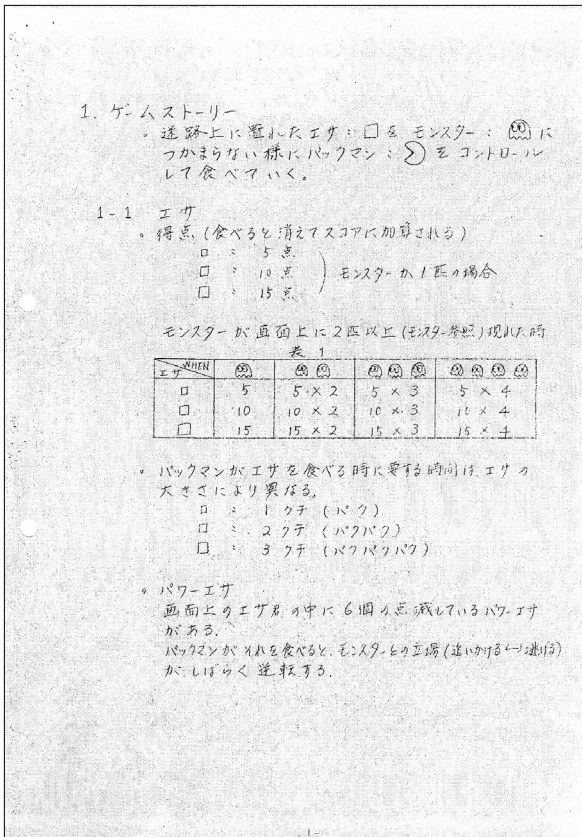 1. ゲームストーリー
。迷路上に置れたエサ：□を モンスター： に
つかまらない様にパックマン： をコントロール
して食べていく。
1-1 エサ
。得点(食べると消えてスコアに加算される)
□ : 5点
□ : 10点
□ : 15点
モンスターが1匹の場合
モンスターが画面上に2匹以上(モンスター参照)現れた時
表1
エサ WHEN
□ 5 5×2 5×3 5×4
□ 10 10×2 10×3 10×4
□ 15 15×2 15×3 15×4
。パックマンがエサを食べる時に要する時間は、エサの
大きさにより異なる。
□ : 1クチ (パク)
□ : 2クチ (パクパク)
□ : 3クチ (パクパクパク)
。パワーエサ
画面上のエサ君の中に6個の点滅しているパワーエサ
がある。
パックマンがそれを食べると、モンスターとの立場(追いかける↔逃げる)
がしばらく逆転する。
-1-